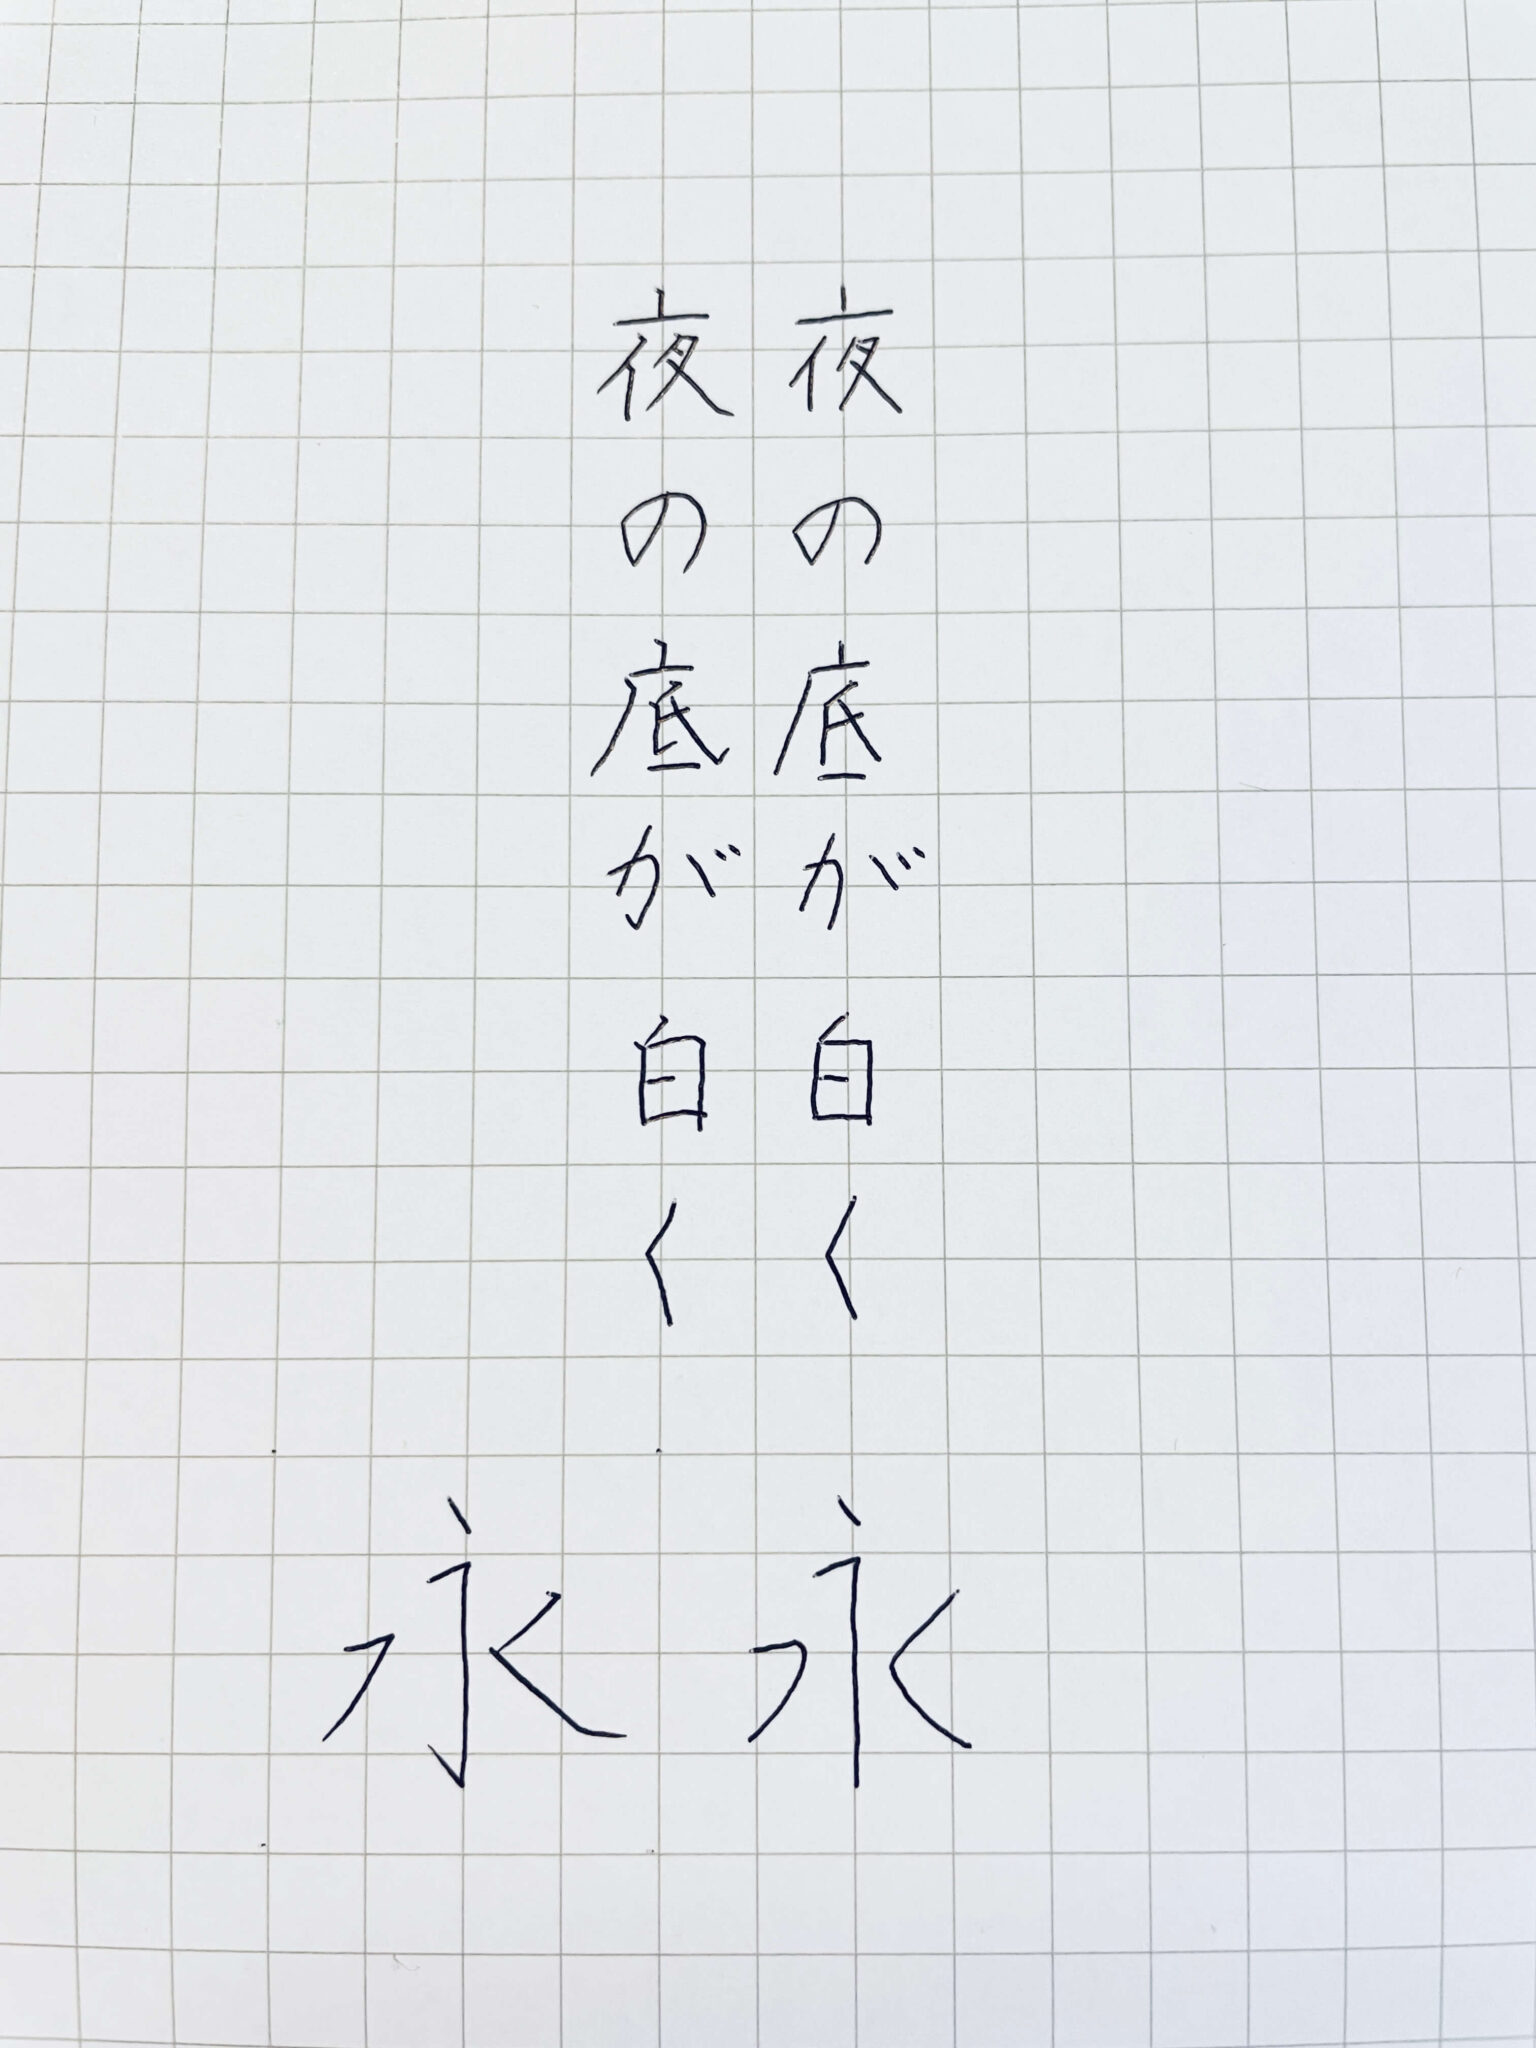 夜の底が白く
夜の底が白く
永 永